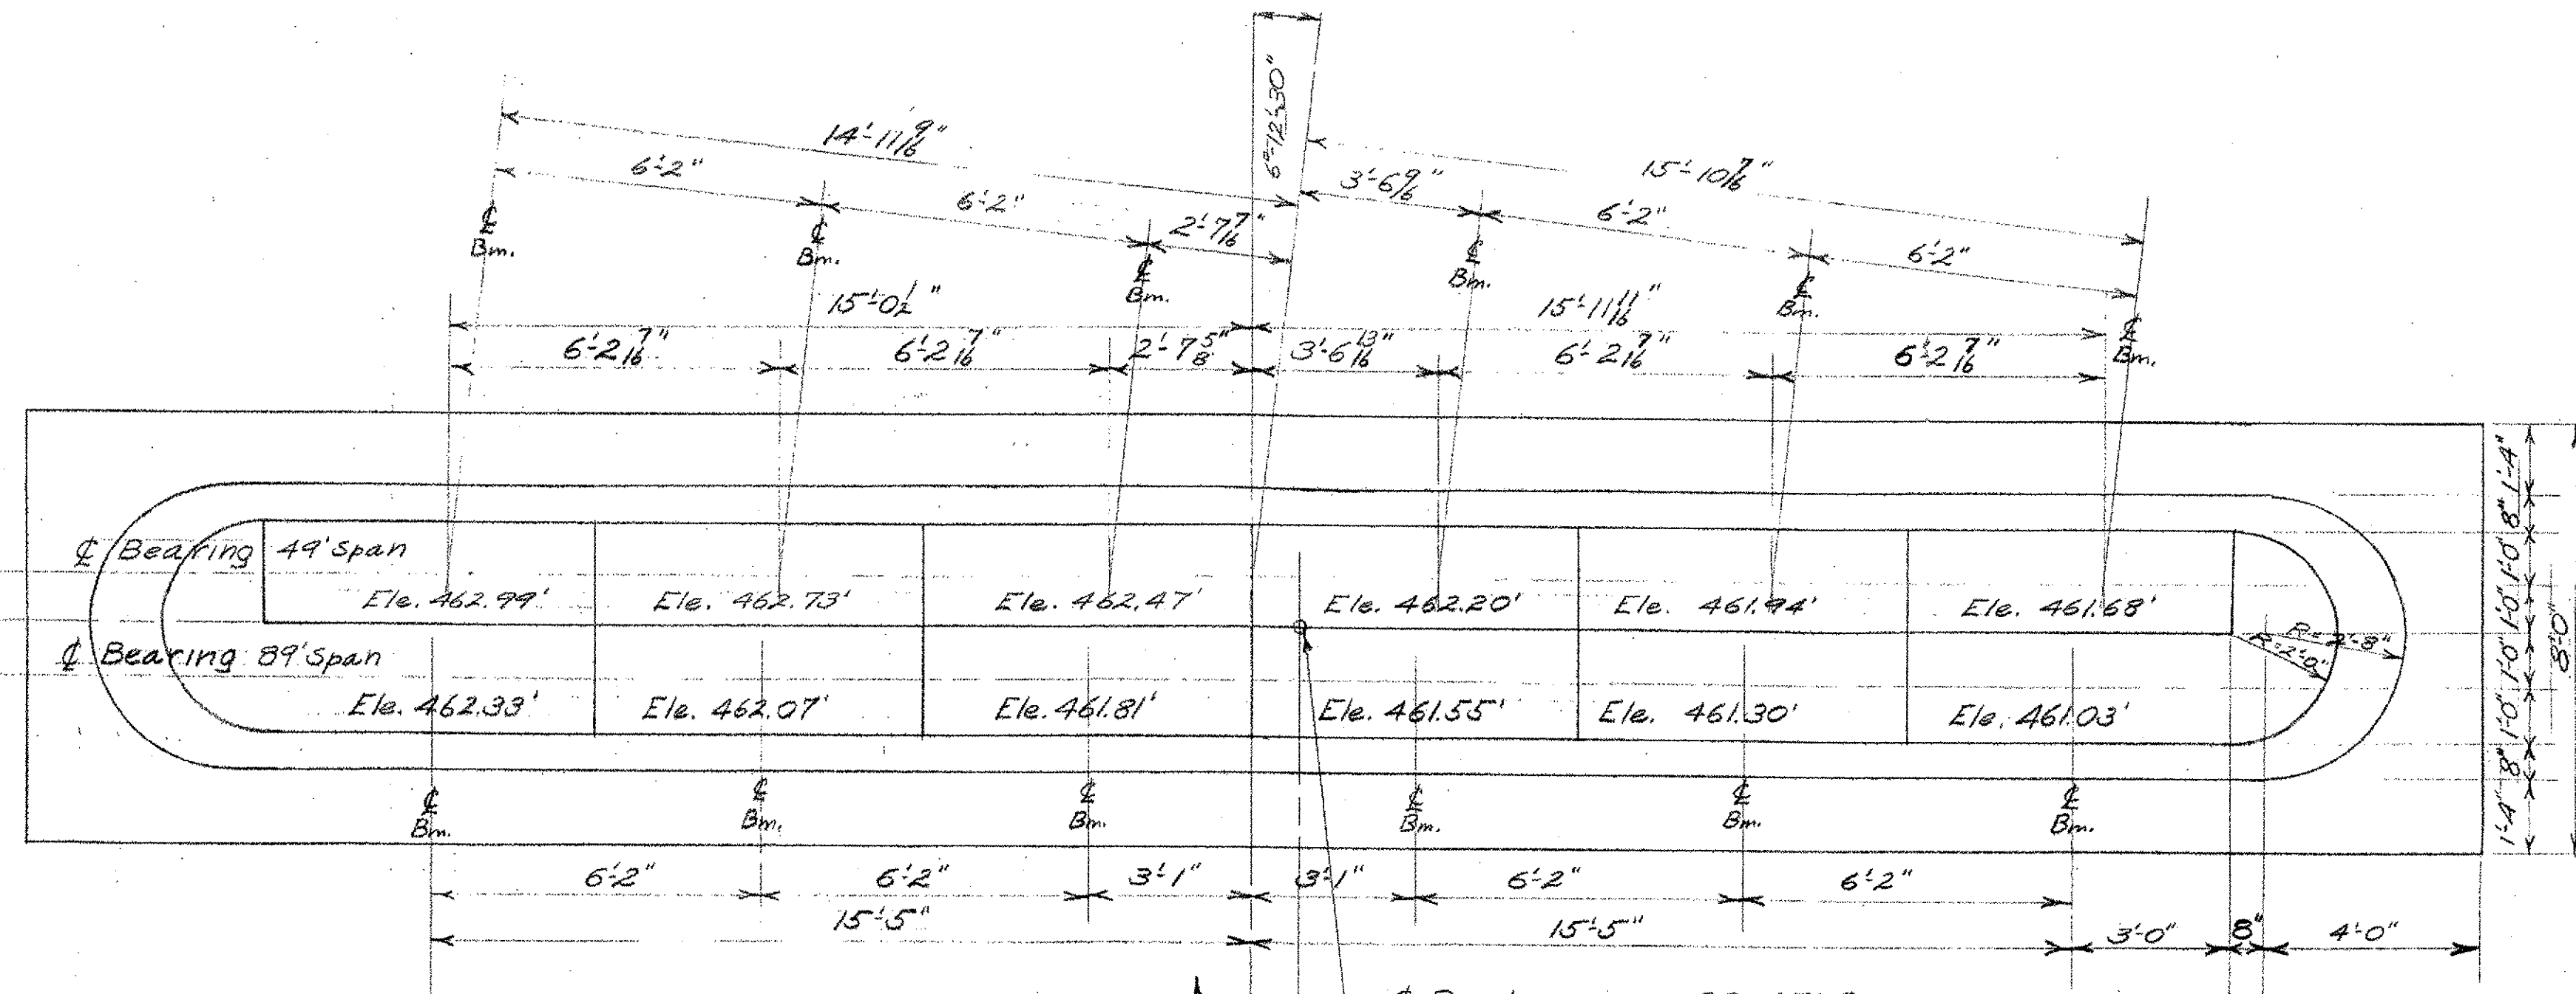 6°-12'-30"
14'-11 9/16"
15'-10 7/16"
6'-2"
6'-2"
2'-7 7/16"
3'-6 9/16"
6'-2"
6'-2"
℄ Bm.
℄ Bm.
℄ Bm.
℄ Bm.
℄ Bm.
℄ Bm.
15'-0 1/2"
15'-11 11/16"
6'-2 7/16"
6'-2 7/16"
2'-7 5/8"
3'-6 13/16"
6'-2 7/16"
6'-2 7/16"
℄ Bearing 49' Span
Ele. 462.99'
Ele. 462.73'
Ele. 462.47'
Ele. 462.20'
Ele. 461.94'
Ele. 461.68'
℄ Bearing 89' Span
Ele. 462.33'
Ele. 462.07'
Ele. 461.81'
Ele. 461.55'
Ele. 461.30'
Ele. 461.03'
R=2'-8"
R=2'-0"
1'-4"
8"
1'-0"
1'-0"
1'-0"
1'-0"
8"
1'-4"
8'-0"
℄ Bm.
℄ Bm.
℄ Bm.
℄ Bm.
℄ Bm.
℄ Bm.
6'-2"
6'-2"
3'-1"
3'-1"
6'-2"
6'-2"
15'-5"
15'-5"
3'-0"
8"
4'-0"